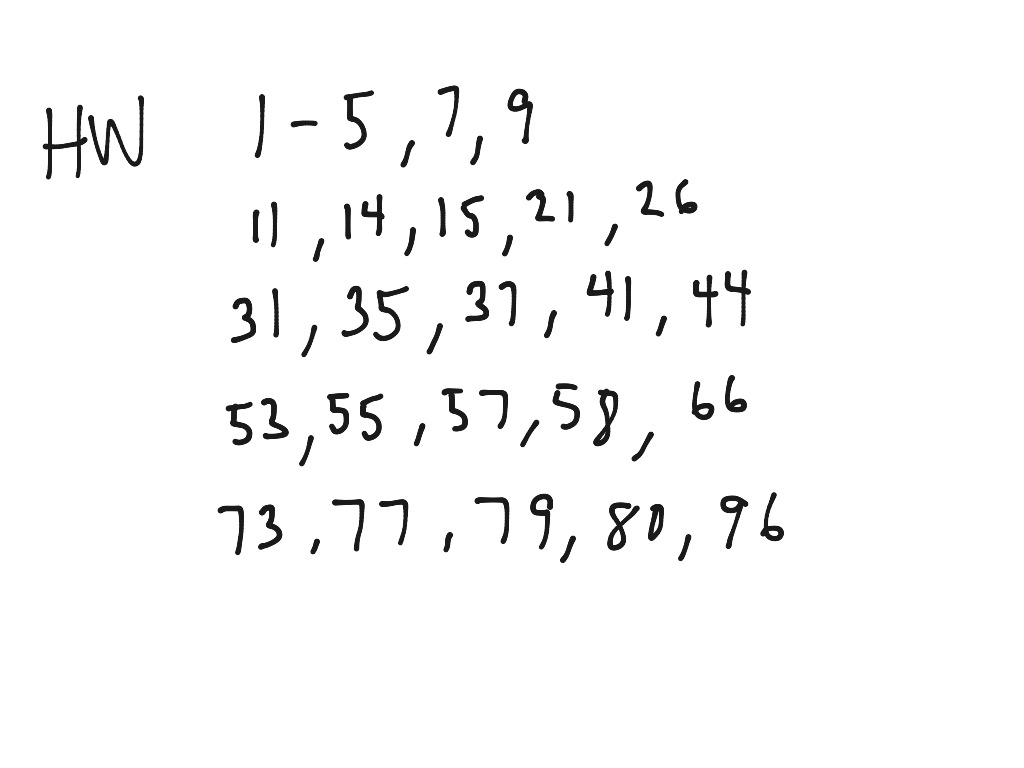 HW 1 - 5, 7, 9
11, 14, 15, 21, 26
31, 35, 37, 41, 44
53, 55, 57, 58, 66
73, 77, 79, 80, 96